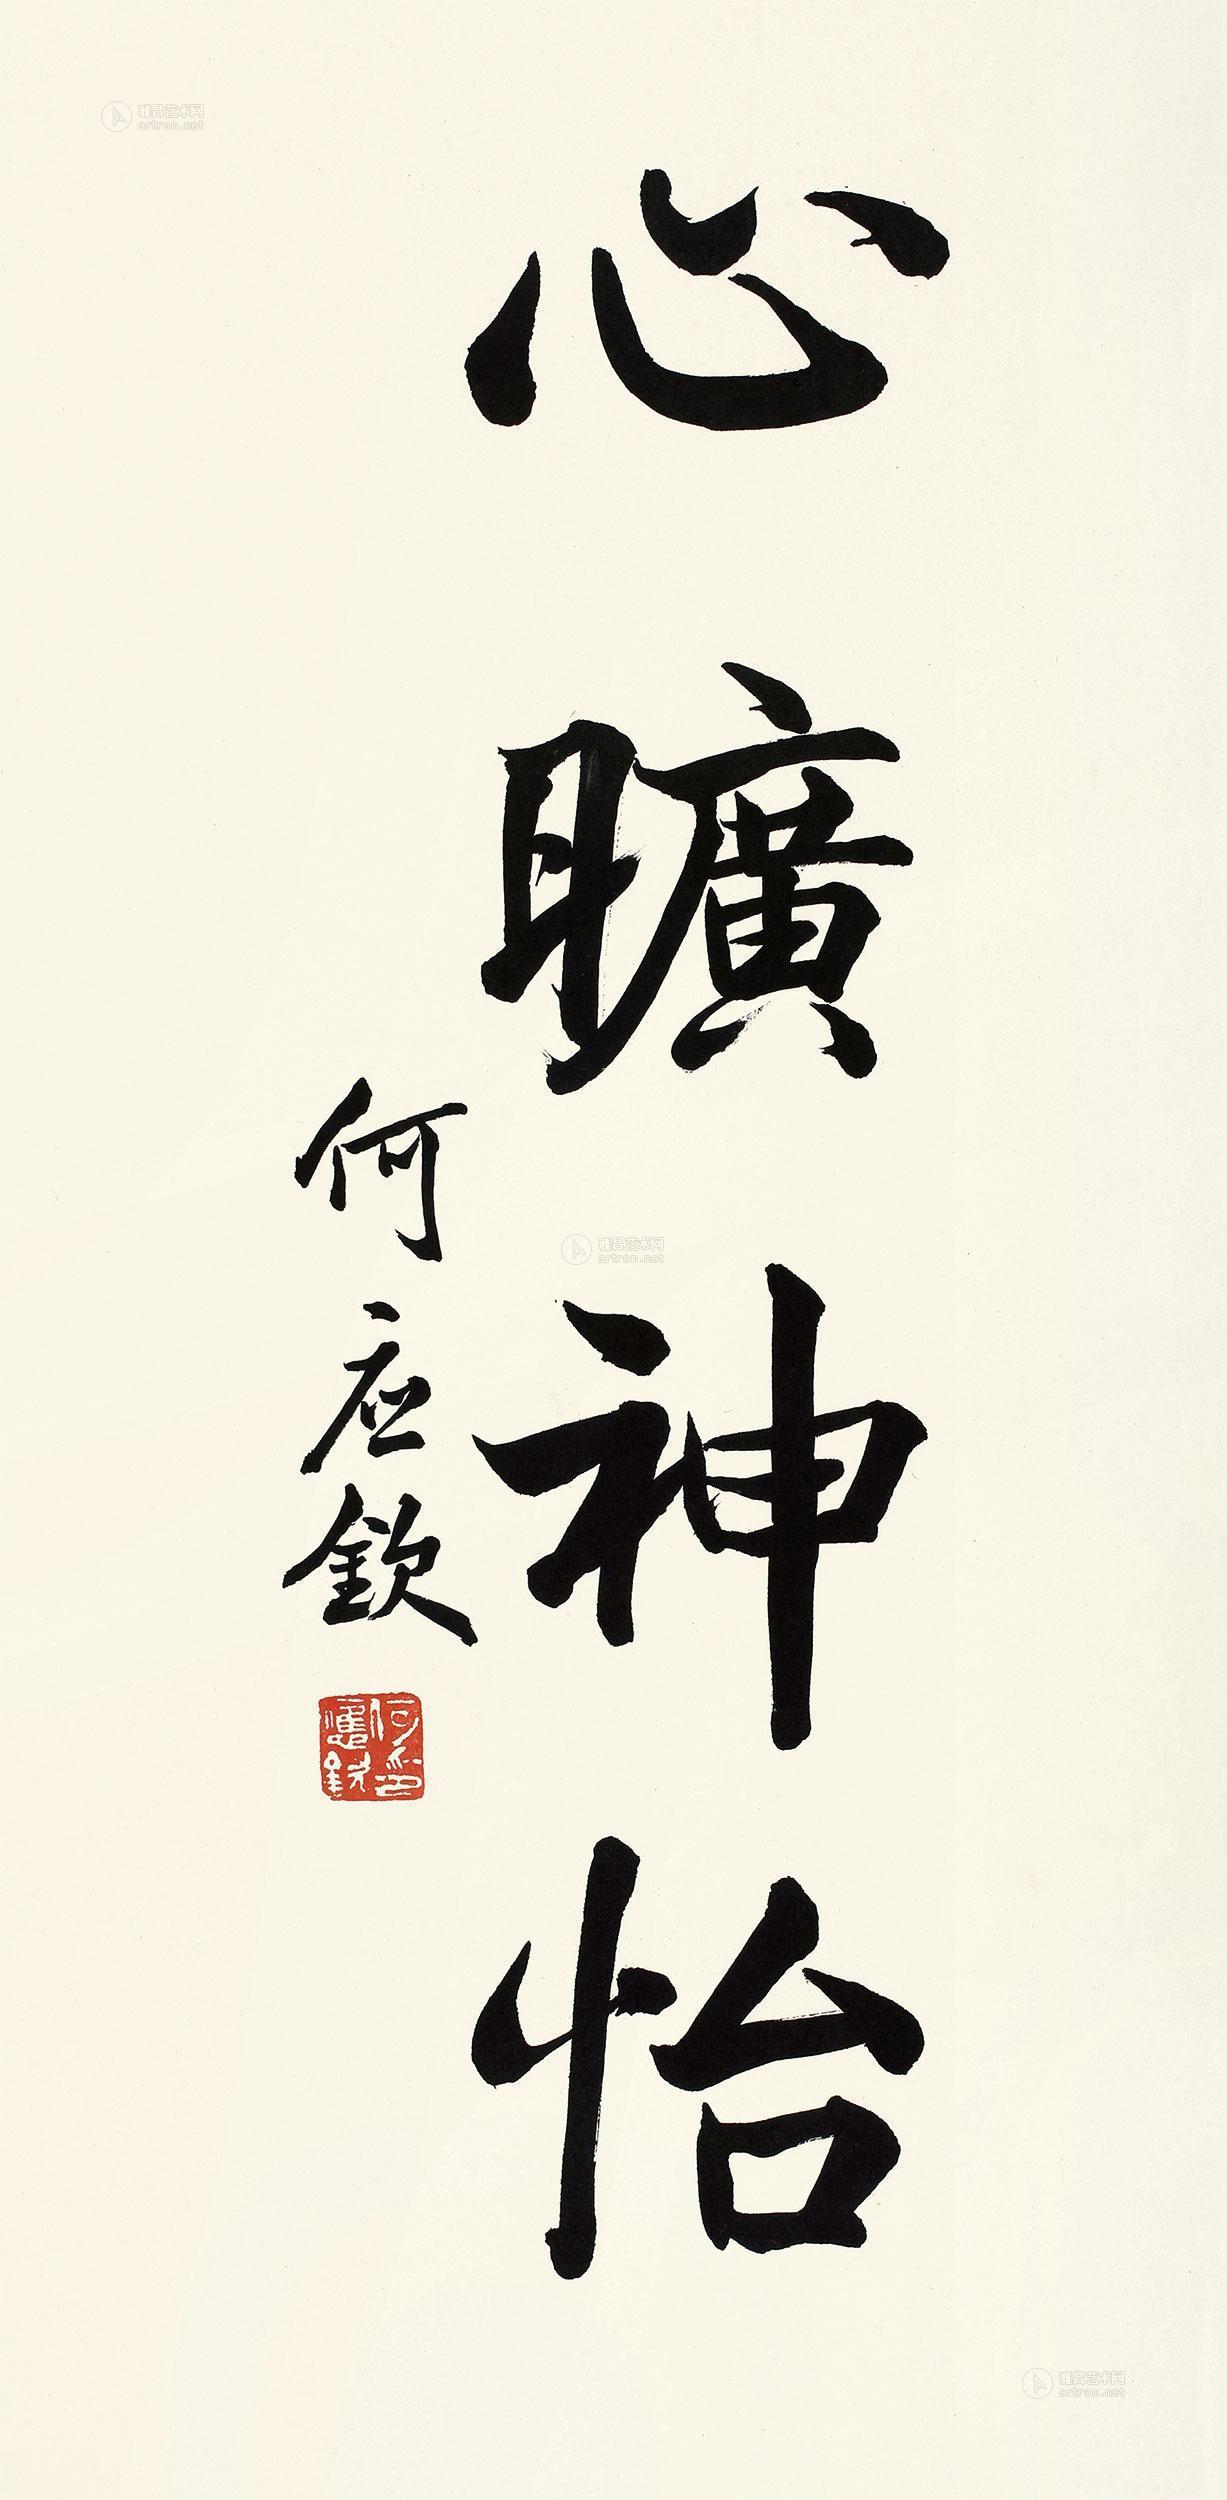 心曠神怡
何应欽
何應欽印
雅昌艺术网
artron.net
雅昌艺术网
artron.net
雅昌艺术网
artron.net